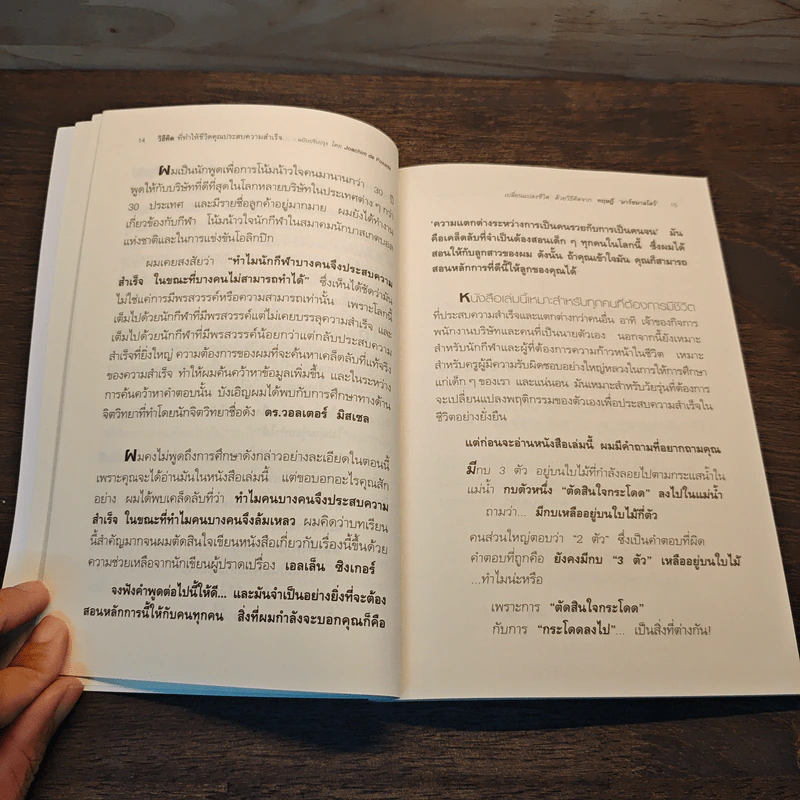 14 วิธีคิด ที่ทำให้ชีวิตคุณประสบความสำเร็จ... ฉบับปรับปรุง โดย Joachim de Posada
ผมเป็นนักพูดเพื่อการโน้มน้าวใจคนมานานกว่า 30 ปี
พูดให้กับบริษัทที่ดีที่สุดในโลกหลายบริษัทในประเทศต่าง ๆ กว่า
30 ประเทศ และมีรายชื่อลูกค้าอยู่มากมาย ผมยังได้ทำงาน
เกี่ยวข้องกับกีฬา โน้มน้าวใจนักกีฬาในสมาคมนักบาสเกตบอล
แห่งชาติและในการแข่งขันโอลิกปิก
ผมเคยสงสัยว่า “ทำไมนักกีฬาบางคนจึงประสบความ
สำเร็จ ในขณะที่บางคนไม่สามารถทำได้” ซึ่งเห็นได้ชัดว่ามัน
ไม่ใช่แค่การมีพรสวรรค์หรือความสามารถเท่านั้น เพราะโลกนี้
เต็มไปด้วยนักกีฬาที่มีพรสวรรค์แต่ไม่เคยบรรลุความสำเร็จ และ
เต็มไปด้วยนักกีฬาที่มีพรสวรรค์น้อยกว่าแต่กลับประสบความ
สำเร็จที่ยิ่งใหญ่ ความต้องการของผมที่จะค้นหาเคล็ดลับที่แท้จริง
ของความสำเร็จ ทำให้ผมค้นคว้าหาข้อมูลเพิ่มขึ้น และในระหว่าง
การค้นคว้าหาคำตอบนั้น บังเอิญผมได้พบกับการศึกษาทางด้าน
จิตวิทยาที่ทำโดยนักจิตวิทยาชื่อดัง ดร.วอลเตอร์ มิสเชล
ผมคงไม่พูดถึงการศึกษาดังกล่าวอย่างละเอียดในตอนนี้
เพราะคุณจะได้อ่านมันในหนังสือเล่มนี้ แต่ขอบอกอะไรคุณสัก
อย่าง ผมได้พบเคล็ดลับที่ว่า ทำไมคนบางคนจึงประสบความ
สำเร็จ ในขณะที่ทำไมคนบางคนจึงล้มเหลว ผมคิดว่าบทเรียน
นี้สำคัญมากจนผมตัดสินใจเขียนหนังสือเกี่ยวกับเรื่องนี้ขึ้นด้วย
ความช่วยเหลือจากนักเขียนผู้ปราดเปรื่อง เอลเล็น ซิงเกอร์
จงฟังคำพูดต่อไปนี้ให้ดี... และมันจำเป็นอย่างยิ่งที่จะต้อง
สอนหลักการนี้ให้กับคนทุกคน สิ่งที่ผมกำลังจะบอกคุณก็คือ
เปลี่ยนแปลงชีวิต ด้วยวิธีคิดจาก ทฤษฎี ‘มาร์ชมาลโลว์’ 15
‘ความแตกต่างระหว่างการเป็นคนรวยกับการเป็นคนจน’ มัน
คือเคล็ดลับที่จำเป็นต้องสอนเด็ก ๆ ทุกคนในโลกนี้ ซึ่งผมได้
สอนให้กับลูกสาวของผม ดังนั้น ถ้าคุณเข้าใจมัน คุณก็สามารถ
สอนหลักการที่ดีนี้ให้ลูกของคุณได้
หนังสือเล่มนี้เหมาะสำหรับทุกคนที่ต้องการมีชีวิต
ที่ประสบความสำเร็จและแตกต่างกว่าคนอื่น อาทิ เจ้าของกิจการ
พนักงานบริษัทและคนที่เป็นนายตัวเอง นอกจากนี้ยังเหมาะ
สำหรับนักกีฬาและผู้ที่ต้องการความก้าวหน้าในชีวิต เหมาะ
สำหรับครูผู้มีความรับผิดชอบอย่างใหญ่หลวงในการให้การศึกษา
แก่เด็ก ๆ ของเรา และแน่นอน มันเหมาะสำหรับวัยรุ่นที่ต้องการ
จะเปลี่ยนแปลงพฤติกรรมของตัวเองเพื่อประสบความสำเร็จใน
ชีวิตอย่างยั่งยืน
แต่ก่อนจะอ่านหนังสือเล่มนี้ ผมมีคำถามที่อยากถามคุณ
มีกบ 3 ตัว อยู่บนใบไม้ที่กำลังลอยไปตามกระแสน้ำใน
แม่น้ำ กบตัวหนึ่ง “ตัดสินใจกระโดด” ลงไปในแม่น้ำ
ถามว่า... มีกบเหลืออยู่บนใบไม้กี่ตัว
คนส่วนใหญ่ตอบว่า “2 ตัว” ซึ่งเป็นคำตอบที่ผิด
คำตอบที่ถูกคือ ยังคงมีกบ “3 ตัว” เหลืออยู่บนใบไม้
...ทำไมน่ะหรือ
เพราะการ “ตัดสินใจกระโดด”
กับการ “กระโดดลงไป”... เป็นสิ่งที่ต่างกัน!